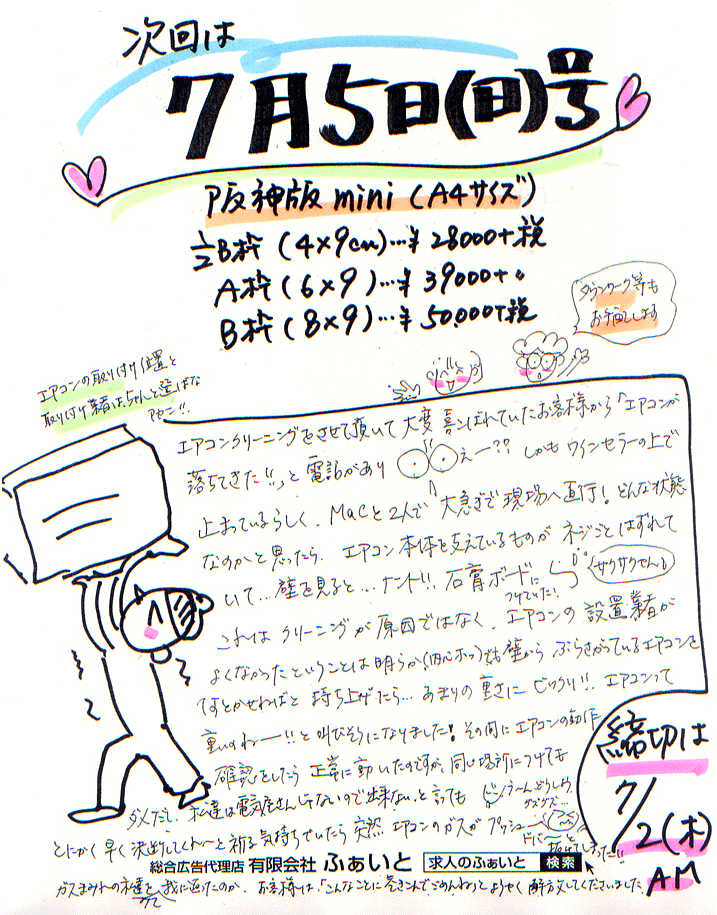 次回は
7月5日(日)号
阪神版mini(A4サイズ)
½B枠(4×9cm)…¥28000+税
A枠(6×9)…¥39000+〃
B枠(8×9)…¥50,000+税
タウンワーク等も
お手配します
エアコンの取り付け位置と
取り付け業者は、ちゃんと選ばな
アカン!!
エアコンクリーニングをさせて頂いて大変喜ばれていたお客様から「エアコンが
落ちてきた!!」と電話があり えー?? しかもワインセラーの上で
止まっているらしく、Macと2人で大急ぎで現場へ直行!どんな状態
なのかと思ったら、エアコン本体を支えているものがネジごとはずれて
いて…壁を見ると…ナント!!石膏ボードに
つけていた!!
サクサクやんか
これはクリーニングが原因ではなく、エアコンの設置業者が
よくなかったということは明らか(内心ホッ)でも壁からぶらさがっているエアコンを
なんとかせねばと持ち上げたら…あまりの重さにビックリ!!エアコンって
重いのねー!!と叫びそうになりました!その間にエアコンの動作
確認をしたら正常に動いたのですが、同じ場所につけても
ダメだし、私達は電気屋さんじゃないので出来ないと言っても
う〜んどうしよう
グズグズ…
とにかく早く決断してくれ〜と祈る気持ちでいたら突然エアコンのガスがプッシュー
ドバーと
抜けてしまった!!
締切は
7/2(木)
AM
総合広告代理店 有限会社 ふぁいと 求人のふぁいと 検索
ガスまみれの私達を見て我に返ったのか、お客様は、「こんなことに巻きこんでごめんねっ」とようやく解放してくださいました